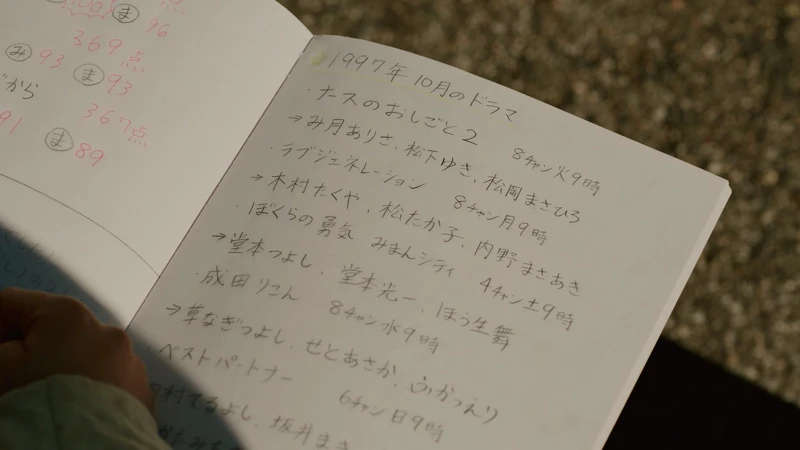 (ま) 96
369点
(み) 93 (ま) 93
から
367点
91 (ま) 89
1997年 10月のドラマ
・ナースのおしごと2 8チャン火9時
→み月ありさ、松下ゆき、松岡まさひろ
・ラブジェネレーション 8チャン月9時
→木村たくや、松たか子、内野まさあき
・ぼくらの勇気 みまんシティ 4チャン土9時
→堂本つよし、堂本光一、ほう生舞
・成田りこん 8チャン水9時
→草なぎつよし、せとあさか、ふかつえり
ベストパートナー 6チャン日9時
村てるよし、坂井まき